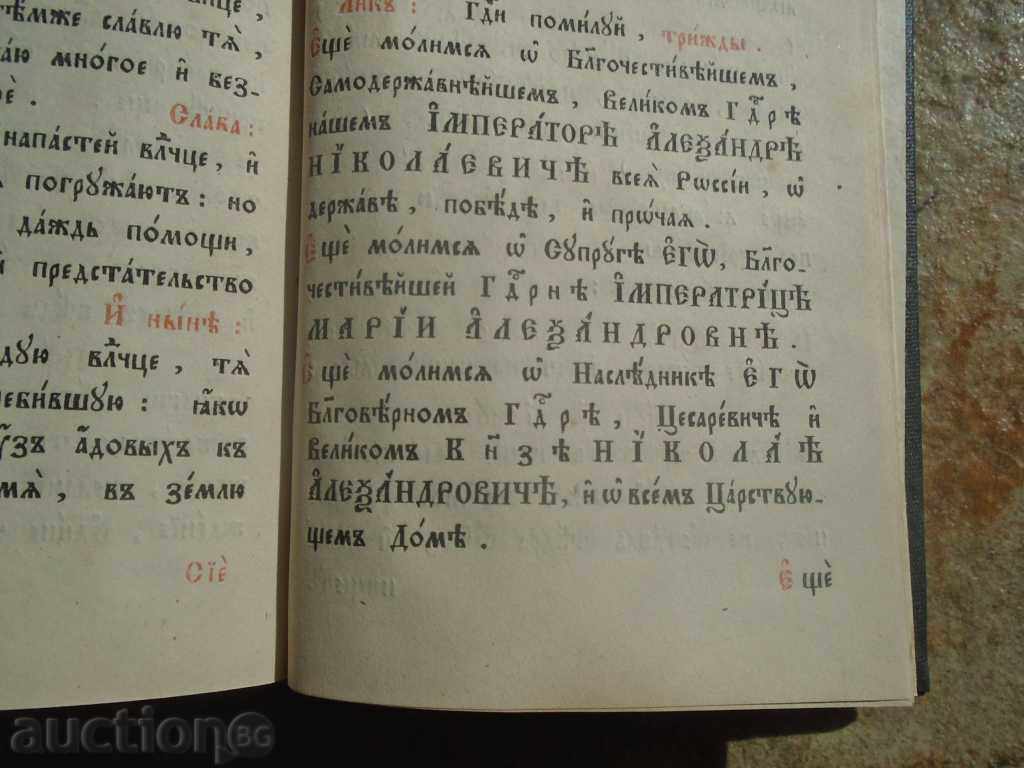 вчце,
тѣ́мже славлю тѧ̀,
аю мно́гое и҆ вез-
ое.
Слава:
напа́стей вл҃чце, и҆
погружа́ютъ: но
да́ждь по́мощи,
й предста́тельство
И҆ ны́нѣ:
дꙋю вл҃чце, тѧ̀
реби́вшꙋю: ꙗ҆́кѡ
оу́зъ а҆́довыхъ къ
мѧ̀, въ зе́млю
Сїѐ
Ли́къ: Гдⷭ҇и поми́лꙋй, три́жды.
Е҆щѐ мо́лимсѧ ѡ҆ Блгⷭ҇очести́вѣйшемъ,
Самодержа́внѣйшемъ, Вели́комъ Гдⷭ҇рѣ
на́шемъ І҆МПЕРА́ТОРѢ А҆ЛЕѮА́НДРѢ
НІКОЛА́ЕВИЧѢ всеѧ̀ Рѡссі́и, ѡ҆
держа́вѣ, побѣ́дѣ, и҆ прѡ́чаѧ.
Е҆щѐ мо́лимсѧ ѡ҆ Сꙋпрꙋ́гѣ Е҆ГѠ̀, Блгⷭ҇о-
чести́вѣйшей Гдⷭ҇рнѣ І҆МПЕРАТРИ́ЦѢ
МАРІ́И А҆ЛЕѮА́НДРОВНѢ.
Е҆щѐ мо́лимсѧ ѡ҆ Наслѣ́дникѣ Е҆ГѠ̀
Блгⷭ҇овѣ́рномъ Гдⷭ҇рѣ, Цесаре́вичѣ и҆
Вели́комъ КНЗѢ НІКОЛА́Ѣ
А҆ЛЕѮА́НДРОВИЧѢ, и҆ ѡ҆ все́мъ Ца́рствꙋю-
щемъ До́мѣ.
Е҆щѐ
auction BG